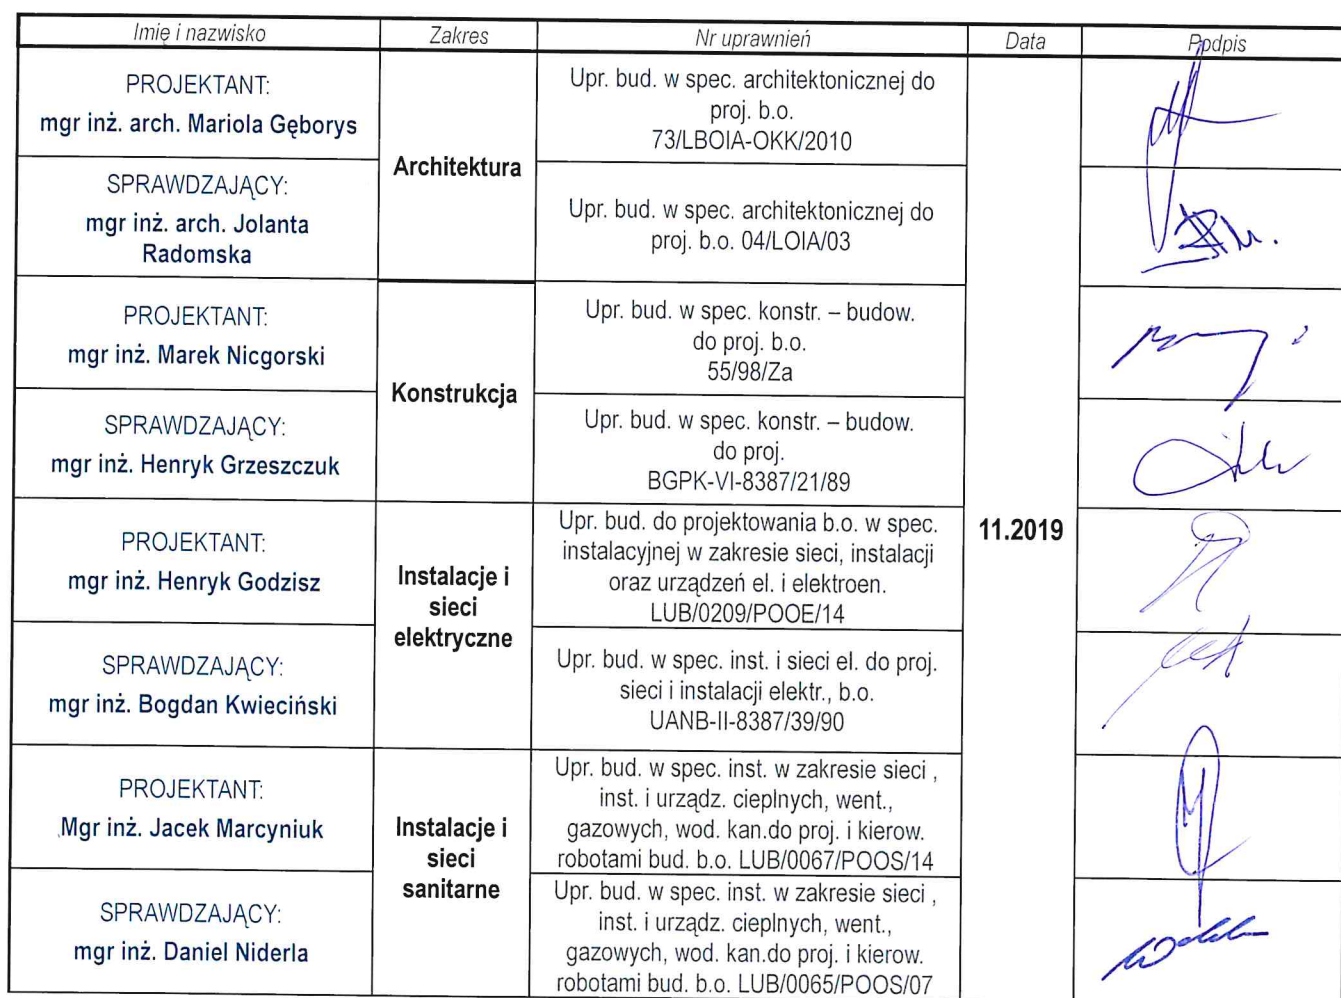 Imię i nazwisko Zakres Nr uprawnień Data Podpis
PROJEKTANT:
mgr inż. arch. Mariola Gęborys
Architektura
Upr. bud. w spec. architektonicznej do
proj. b.o.
73/LBOIA-OKK/2010
SPRAWDZAJĄCY:
mgr inż. arch. Jolanta
Radomska
Upr. bud. w spec. architektonicznej do
proj. b.o. 04/LOIA/03
PROJEKTANT:
mgr inż. Marek Nicgorski
Konstrukcja
Upr. bud. w spec. konstr. – budow.
do proj. b.o.
55/98/Za
SPRAWDZAJĄCY:
mgr inż. Henryk Grzeszczuk
Upr. bud. w spec. konstr. – budow.
do proj.
BGPK-VI-8387/21/89
11.2019
PROJEKTANT:
mgr inż. Henryk Godzisz
Instalacje i
sieci
elektryczne
Upr. bud. do projektowania b.o. w spec.
instalacyjnej w zakresie sieci, instalacji
oraz urządzeń el. i elektroen.
LUB/0209/POOE/14
SPRAWDZAJĄCY:
mgr inż. Bogdan Kwieciński
Upr. bud. w spec. inst. i sieci el. do proj.
sieci i instalacji elektr., b.o.
UANB-II-8387/39/90
PROJEKTANT:
Mgr inż. Jacek Marcyniuk
Instalacje i
sieci
sanitarne
Upr. bud. w spec. inst. w zakresie sieci ,
inst. i urządz. cieplnych, went.,
gazowych, wod. kan.do proj. i kierow.
robotami bud. b.o. LUB/0067/POOS/14
SPRAWDZAJĄCY:
mgr inż. Daniel Niderla
Upr. bud. w spec. inst. w zakresie sieci ,
inst. i urządz. cieplnych, went.,
gazowych, wod. kan.do proj. i kierow.
robotami bud. b.o. LUB/0065/POOS/07